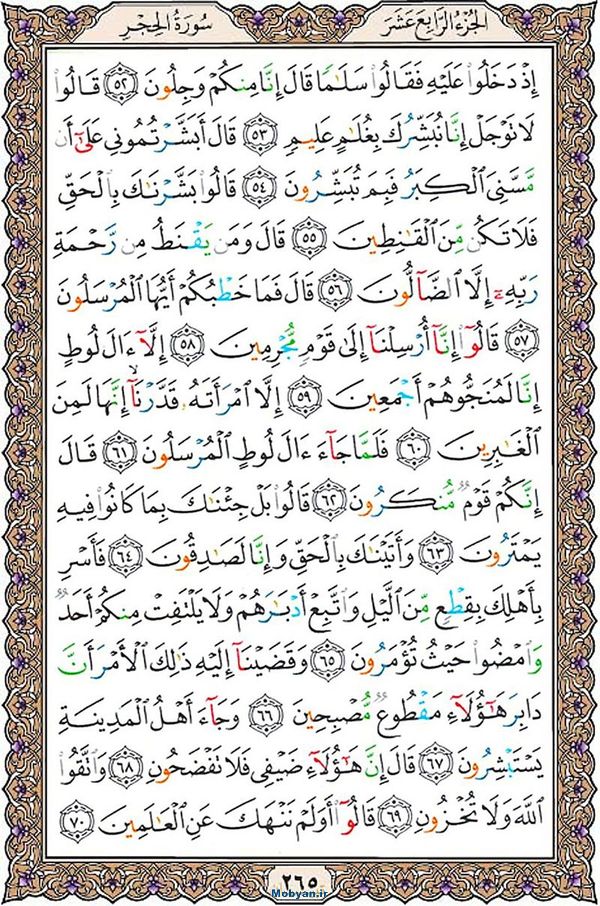 الجُزْءُ الرَّابِعَ عَشَرَ
سُورَةُ الحِجْرِ
إِذْ دَخَلُوا۟ عَلَيْهِ فَقَالُوا۟ سَلَـٰمًا قَالَ إِنَّا مِنكُمْ وَجِلُونَ ۝٥٢ قَالُوا۟
لَا تَوْجَلْ إِنَّا نُبَشِّرُكَ بِغُلَـٰمٍ عَلِيمٍ ۝٥٣ قَالَ أَبَشَّرْتُمُونِى عَلَىٰٓ أَن
مَّسَّنِىَ ٱلْكِبَرُ فَبِمَ تُبَشِّرُونَ ۝٥٤ قَالُوا۟ بَشَّرْنَـٰكَ بِٱلْحَقِّ
فَلَا تَكُن مِّنَ ٱلْقَـٰنِطِينَ ۝٥٥ قَالَ وَمَن يَقْنَطُ مِن رَّحْمَةِ
رَبِّهِۦٓ إِلَّا ٱلضَّآلُّونَ ۝٥٦ قَالَ فَمَا خَطْبُكُمْ أَيُّهَا ٱلْمُرْسَلُونَ
۝٥٧ قَالُوٓا۟ إِنَّآ أُرْسِلْنَآ إِلَىٰ قَوْمٍ مُّجْرِمِينَ ۝٥٨ إِلَّآ ءَالَ لُوطٍ
إِنَّا لَمُنَجُّوهُمْ أَجْمَعِينَ ۝٥٩ إِلَّا ٱمْرَأَتَهُۥ قَدَّرْنَآ ۙ إِنَّهَا لَمِنَ
ٱلْغَـٰبِرِينَ ۝٦٠ فَلَمَّا جَآءَ ءَالَ لُوطٍ ٱلْمُرْسَلُونَ ۝٦١ قَالَ
إِنَّكُمْ قَوْمٌ مُّنكَرُونَ ۝٦٢ قَالُوا۟ بَلْ جِئْنَـٰكَ بِمَا كَانُوا۟ فِيهِ
يَمْتَرُونَ ۝٦٣ وَأَتَيْنَـٰكَ بِٱلْحَقِّ وَإِنَّا لَصَـٰدِقُونَ ۝٦٤ فَأَسْرِ
بِأَهْلِكَ بِقِطْعٍ مِّنَ ٱلَّيْلِ وَٱتَّبِعْ أَدْبَـٰرَهُمْ وَلَا يَلْتَفِتْ مِنكُمْ أَحَدٌ
وَٱمْضُوا۟ حَيْثُ تُؤْمَرُونَ ۝٦٥ وَقَضَيْنَآ إِلَيْهِ ذَٰلِكَ ٱلْأَمْرَ أَنَّ
دَابِرَ هَـٰٓؤُلَآءِ مَقْطُوعٌ مُّصْبِحِينَ ۝٦٦ وَجَآءَ أَهْلُ ٱلْمَدِينَةِ
يَسْتَبْشِرُونَ ۝٦٧ قَالَ إِنَّ هَـٰٓؤُلَآءِ ضَيْفِى فَلَا تَفْضَحُونِ ۝٦٨ وَٱتَّقُوا۟
ٱللَّهَ وَلَا تُخْزُونِ ۝٦٩ قَالُوٓا۟ أَوَلَمْ نَنْهَكَ عَنِ ٱلْعَـٰلَمِينَ ۝٧٠
٢٦٥
Mobyan.ir